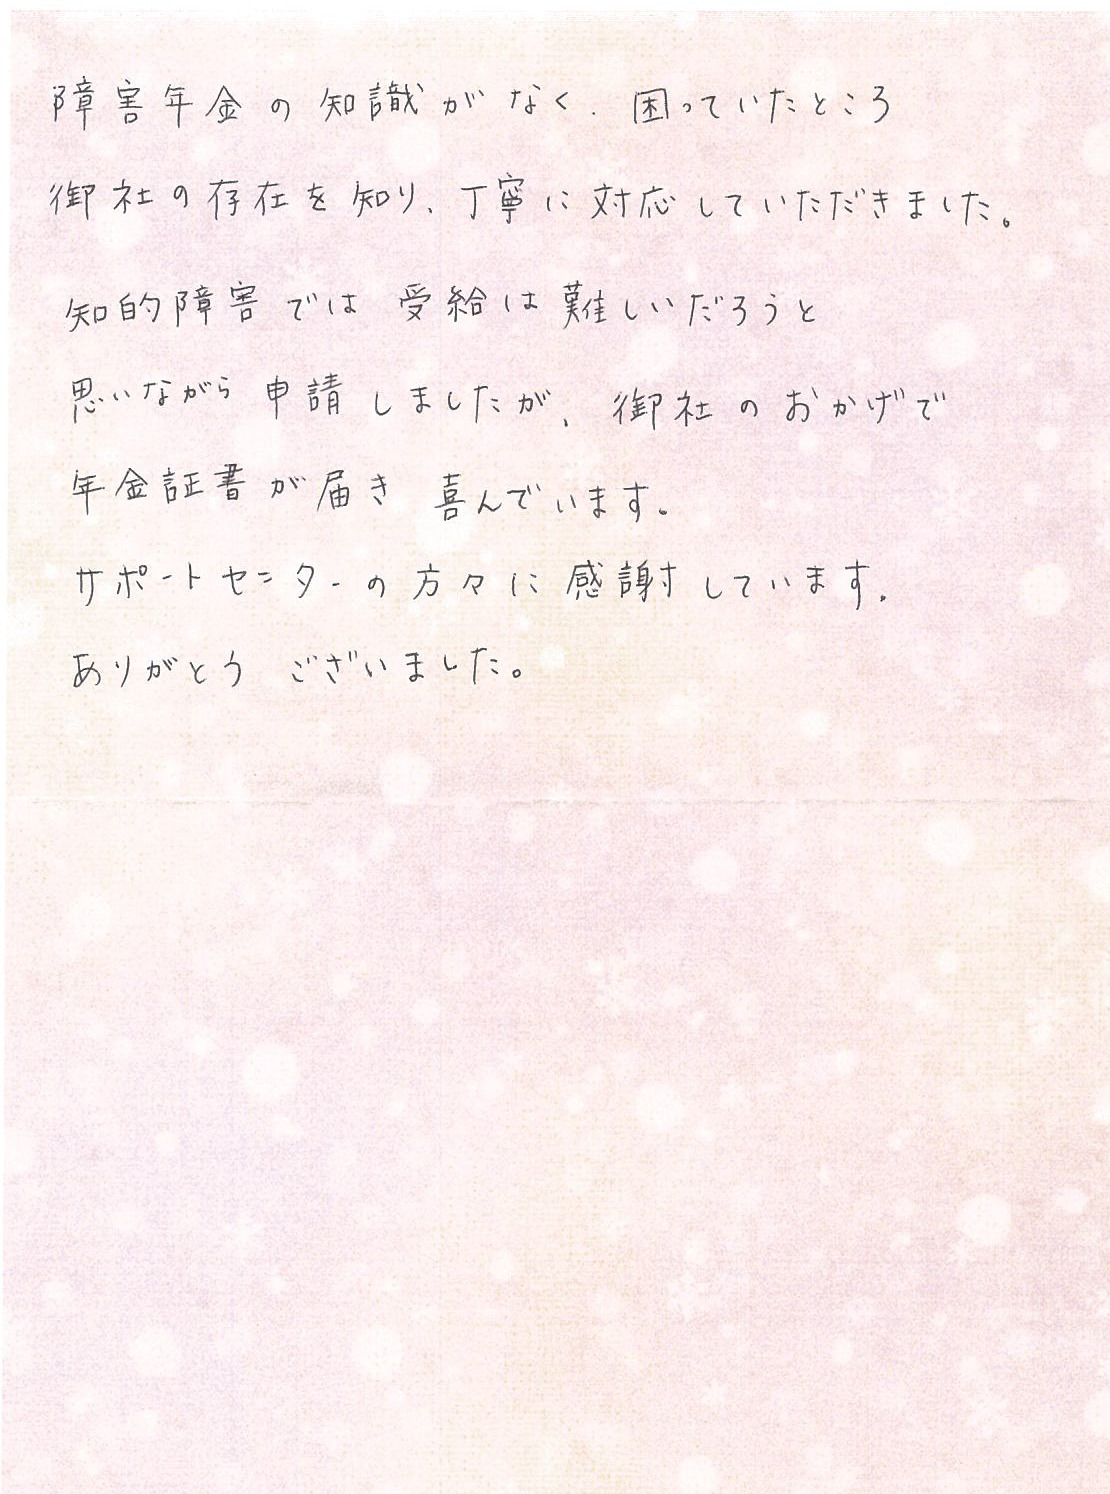 障害年金の知識がなく、困っていたところ
御社の存在を知り、丁寧に対応していただきました。
知的障害では受給は難しいだろうと
思いながら申請しましたが、御社のおかげで
年金証書が届き喜んでいます。
サポートセンターの方々に感謝しています。
ありがとうございました。